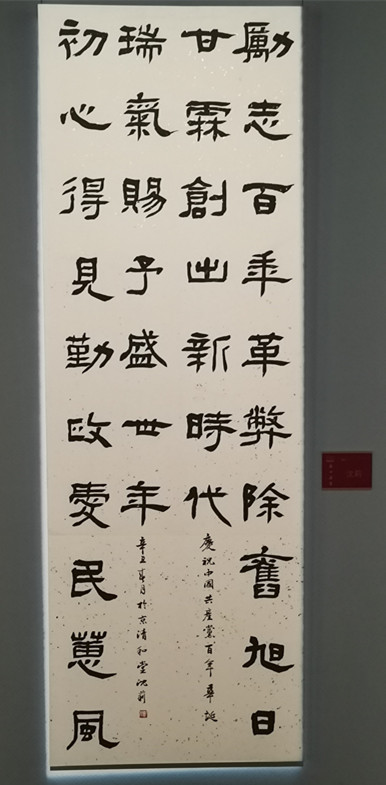 勵志百年革弊除舊旭日
甘霖創出新時代
慶祝中國共產黨百年華誕
初心得見勤政愛民蕙風
瑞氣賜予盛世年
辛丑夏月於京清和堂沈莉